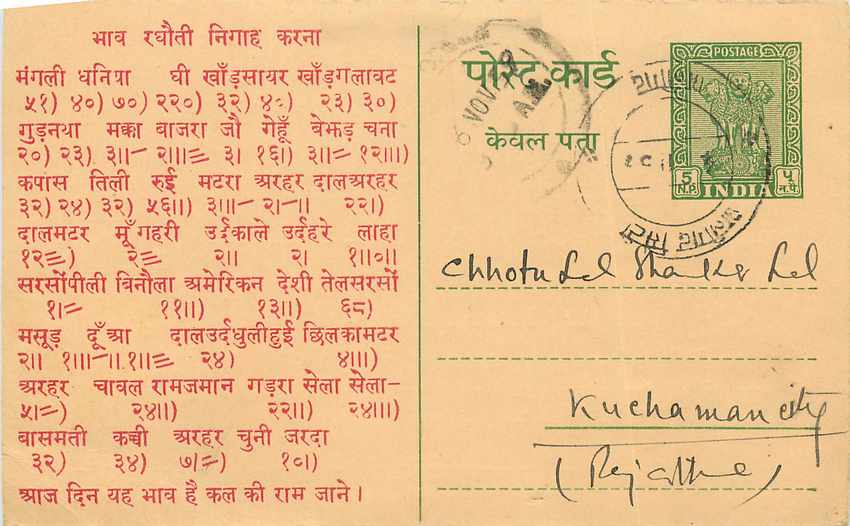 भाव रघौती निगाह करना
मंगली धनिया घी खाँड़सायर खाँड़गलावट
५१) ४०) ७०) २२०) ३२) ४८) २३) ३०)
गुड़नया मक्का बाजरा जौ गेहूँ बेझड़ चना
२०) २३) ३॥- २॥।≡ ३। १६॥) ३॥= १२॥।)
कपास तिली रुई मटरा अरहर दालअरहर
३२) २४) ३२) ५६॥) ३॥।- २।-॥ २२।)
दालमटर मूँगहरी उर्दकाले उर्दहरे लाहा
१२≡) २≡ २॥ २।
सरसोंपीली बिनौला अमेरिकन देशी तेलसरसों
१।= ११॥) १३॥) ६८)
मसूड़ दूँआ दालउर्दधुलीहुई छिलकामटर
२॥ १॥।-॥ १॥≡ २४) ४॥।)
अरहर चावल रामजमान गड़रा सेला सेला-
५।=) २४॥) २२॥) २४॥।)
बासमती कच्ची अरहर चुनी जरदा
३२) ३४) ७।=) १०।)
आज दिन यह भाव है कल की राम जाने।
पोस्ट कार्ड
केवल पता
POSTAGE
5 N.P. INDIA ५ न.पै.
NOV
Chhotu Lal Shanker Lal
Kuchaman city